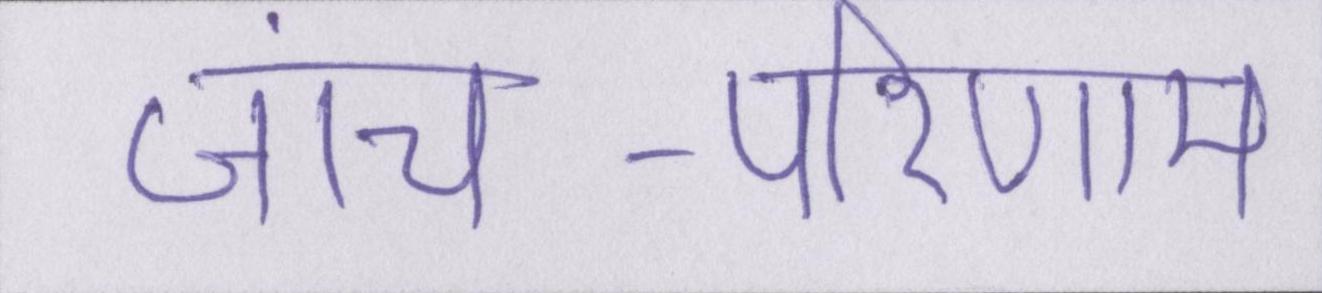 जांच -परिणाम